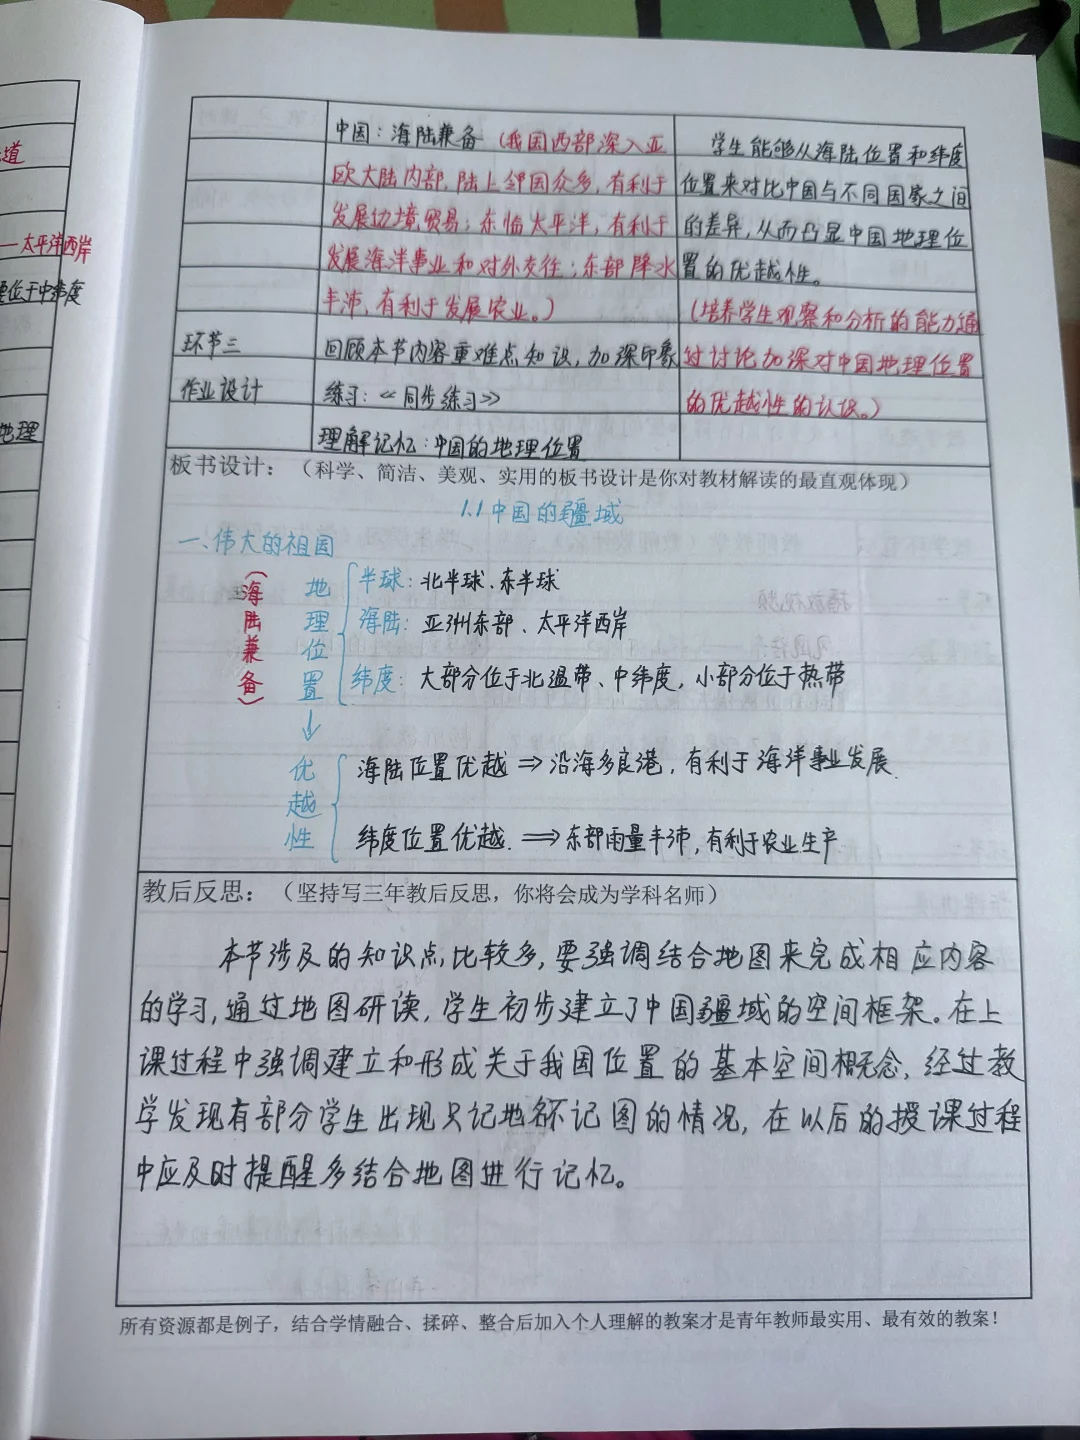 道
一太平洋西岸
位于中纬度
地理
中国：海陆兼备（我国西部深入亚
欧大陆内部，陆上邻国众多，有利于
发展边境贸易；东临太平洋，有利于
发展海洋事业和对外交往；东部降水
丰沛，有利于发展农业。）
学生能够从海陆位置和纬度
位置来对比中国与不同国家之间
的差异，从而凸显中国地理位
置的优越性。
（培养学生观察和分析的能力通
过讨论加深对中国地理位置
的优越性的认识。）
环节三
回顾本节内容重难点知识，加深印象
作业设计
练习：《同步练习》
理解记忆：中国的地理位置
板书设计：（科学、简洁、美观、实用的板书设计是你对教材解读的最直观体现）
1.1中国的疆域
一、伟大的祖国
（海陆兼备）
地理位置
半球：北半球、东半球
海陆：亚洲东部、太平洋西岸
纬度：大部分位于北温带、中纬度，小部分位于热带
↓
优越性
海陆位置优越⇒沿海多良港，有利于海洋事业发展
纬度位置优越.⇒东部雨量丰沛，有利于农业生产
教后反思：（坚持写三年教后反思，你将会成为学科名师）
本节涉及的知识点比较多，要强调结合地图来完成相应内容
的学习，通过地图研读，学生初步建立了中国疆域的空间框架。在上
课过程中强调建立和形成关于我国位置的基本空间概念，经过教
学发现有部分学生出现只记地名不记图的情况，在以后的授课过程
中应及时提醒多结合地图进行记忆。
所有资源都是例子，结合学情融合、揉碎、整合后加入个人理解的教案才是青年教师最实用、最有效的教案！